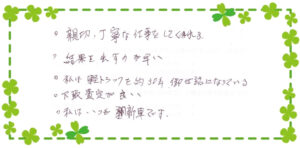 ○ 親切、丁寧な仕事をしてくれる
○ 結果を出すのが早い
○ 私は軽トラックを約50年御世話になっている
○ 下取査定が良い
○ 私は、いつも新車です。